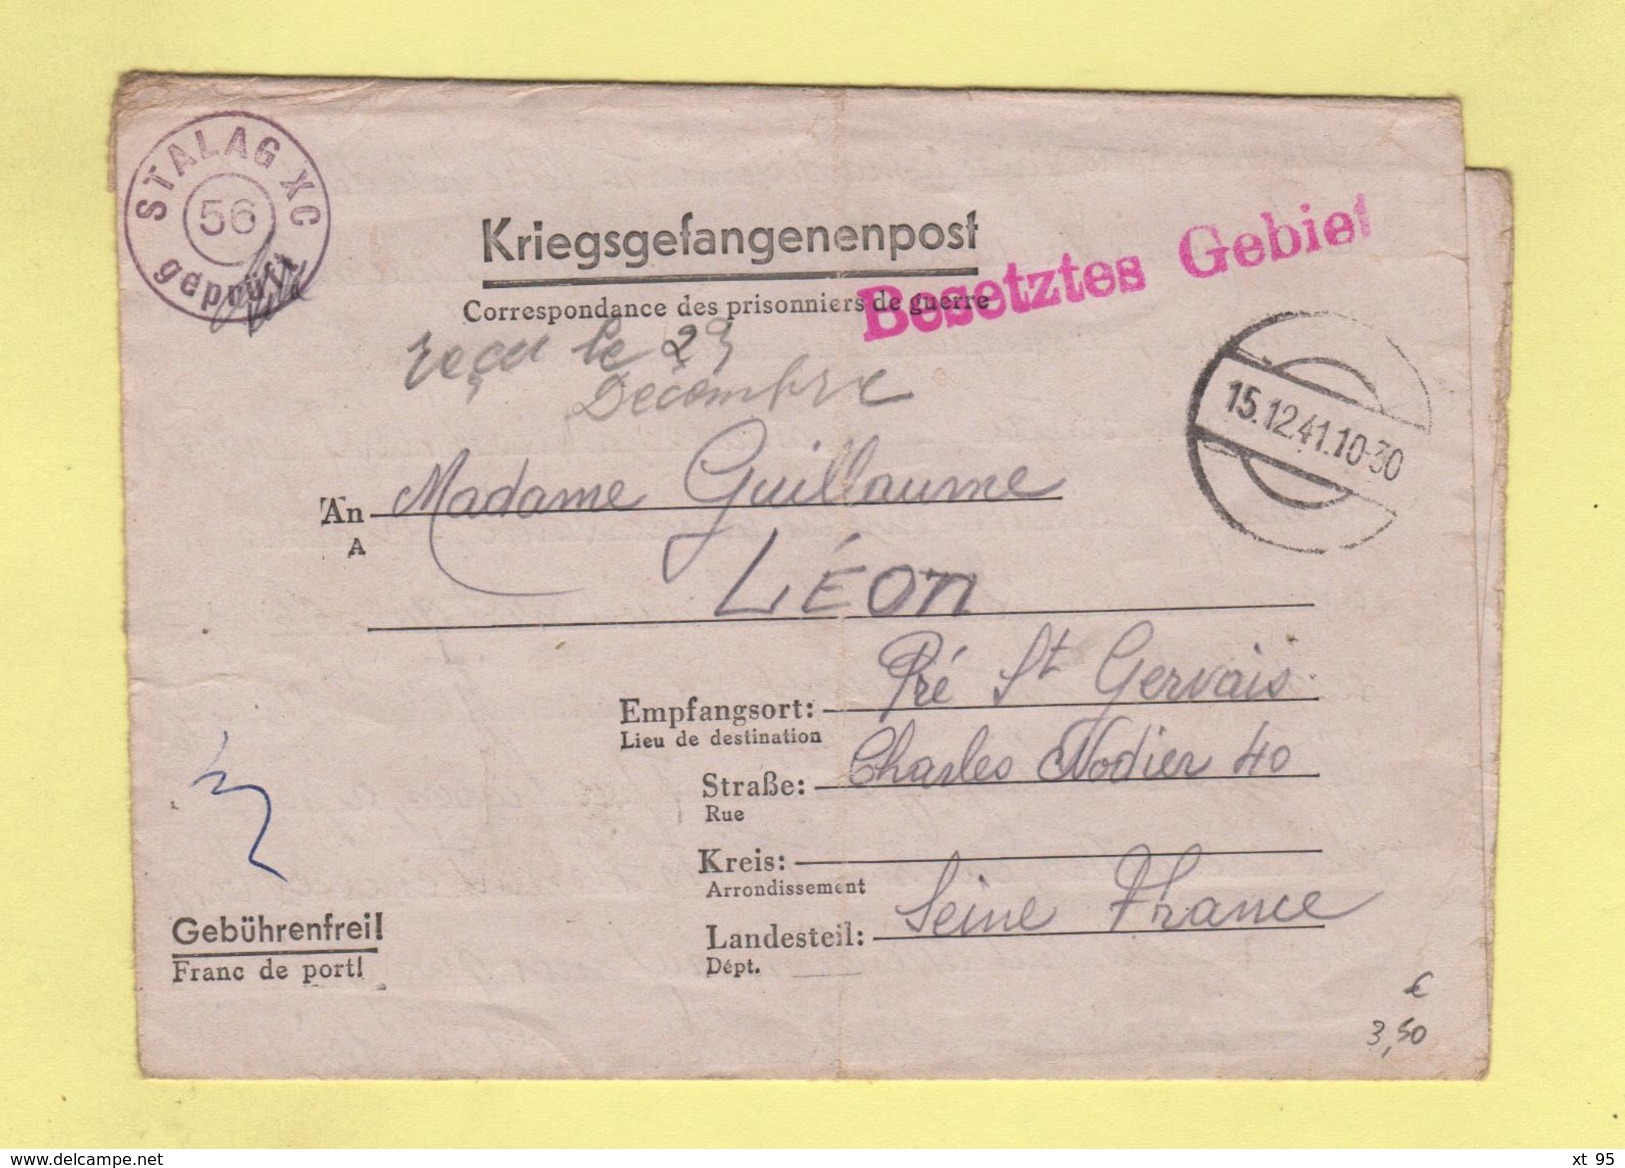 STALAG XC
56
geprüft
Kriegsgefangenenpost
Correspondance des prisonniers de guerre
Besetztes Gebiet
reçu le 29
Decembre
15.12.41.10-30
An Madame Guillaume
A
LÉON
Empfangsort: Pré St Gervais
Lieu de destination
Straße: Charles Nodier 40
Rue
Kreis:
Arrondissement
Landesteil: Seine France
Dépt.
Gebührenfrei!
Franc de port!
€
3,50
www.delcampe.net
xt 95